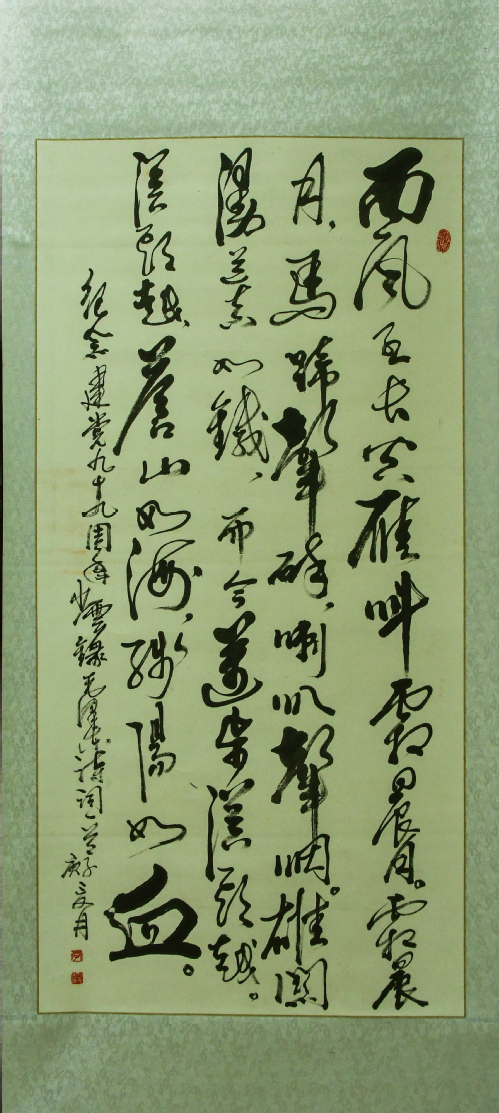 西風烈长空雁叫霜晨月。霜晨
月、馬蹄聲碎、喇叭聲咽。雄関
漫道真如鐵、而今邁步從頭越。
從頭越、蒼山如海、殘陽如血。
紀念建党九十九周年雲錄毛澤东詩詞一首庚子月